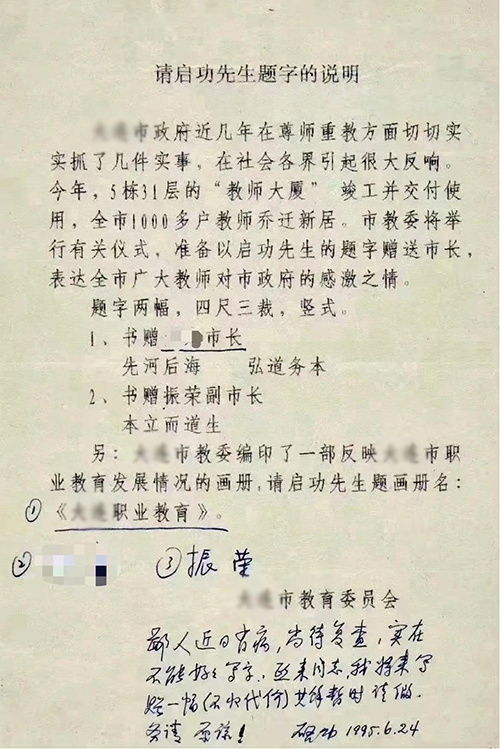 请启功先生题字的说明
市政府近几年在尊师重教方面切切实
实抓了几件实事，在社会各界引起很大反响。
今年，5栋31层的“教师大厦”竣工并交付使
用，全市1000多户教师乔迁新居。市教委将举
行有关仪式，准备以启功先生的题字赠送市长，
表达全市广大教师对市政府的感激之情。
题字两幅，四尺三裁，竖式。
1、书赠 市长
先河后海 弘道务本
2、书赠振荣副市长
本立而道生
另： 市教委编印了一部反映 市职
业教育发展情况的画册，请启功先生题画册名：
① 《 职业教育》。
② ③ 振荣
市教育委员会
鄙人近日有病，尚待复查，实在
不能好好写字。 来同志，我将来写
一幅（不收代价）其余暂时请假。
务请原谅！ 启功 1995.6.24